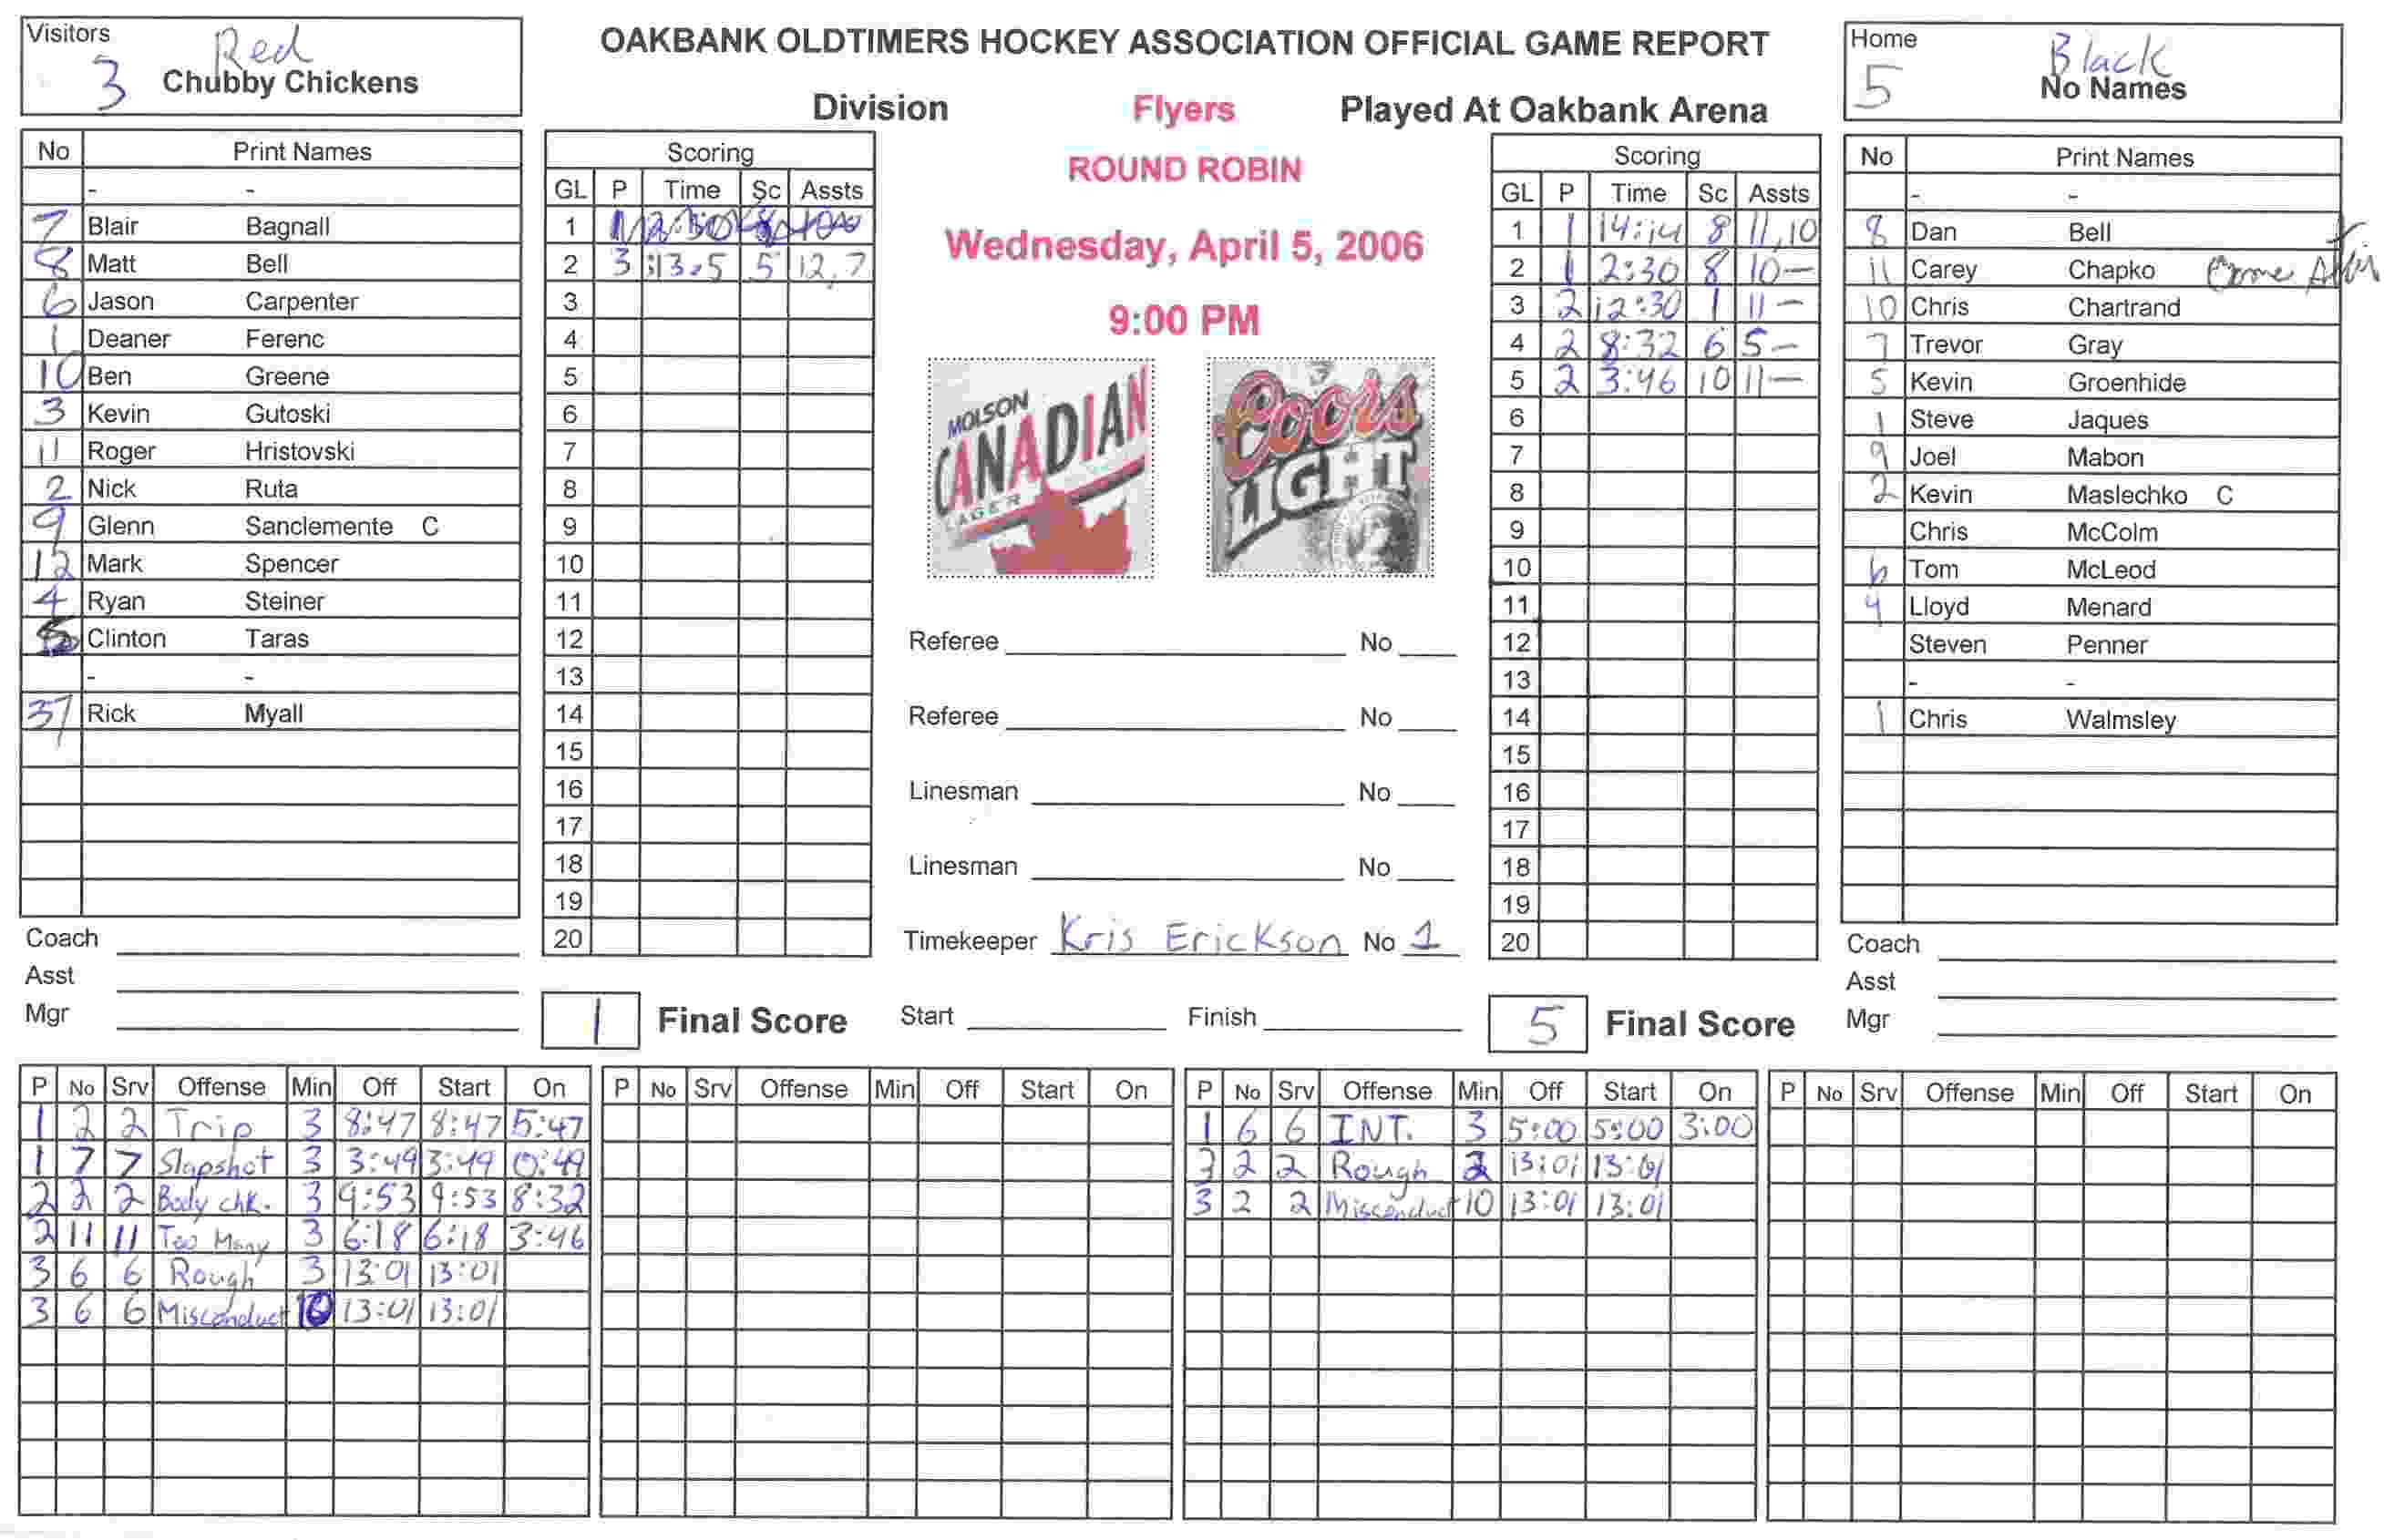 Visitors
Red
3 Chubby Chickens
OAKBANK OLDTIMERS HOCKEY ASSOCIATION OFFICIAL GAME REPORT
Division Flyers Played At Oakbank Arena
ROUND ROBIN
Wednesday, April 5, 2006
9:00 PM
Home
Black
5 No Names
No Print Names
- -
7 Blair Bagnall
8 Matt Bell
6 Jason Carpenter
1 Deaner Ferenc
10 Ben Greene
3 Kevin Gutoski
11 Roger Hristovski
2 Nick Ruta
9 Glenn Sanclemente C
12 Mark Spencer
4 Ryan Steiner
5 Clinton Taras
- -
37 Rick Myall
Coach
Asst
Mgr
Scoring
GL P Time Sc Assts
1 1 2:30 8 10
2 3 :13.5 5 12,7
3
4
5
6
7
8
9
10
11
12
13
14
15
16
17
18
19
20
1 Final Score
MOLSON
CANADIAN
LAGER
Coors
LIGHT
Referee No
Referee No
Linesman No
Linesman No
Timekeeper Kris Erickson No 1
Start Finish
Scoring
GL P Time Sc Assts
1 1 14:14 8 11,10
2 1 2:30 8 10 —
3 2 12:30 1 11 —
4 2 8:32 6 5 —
5 2 3:46 10 11 —
6
7
8
9
10
11
12
13
14
15
16
17
18
19
20
5 Final Score
No Print Names
- -
8 Dan Bell
11 Carey Chapko
10 Chris Chartrand
7 Trevor Gray
5 Kevin Groenhide
1 Steve Jaques
9 Joel Mabon
2 Kevin Maslechko C
Chris McColm
6 Tom McLeod
4 Lloyd Menard
Steven Penner
- -
1 Chris Walmsley
Coach
Asst
Mgr
P No Srv Offense Min Off Start On
1 2 2 Trip 3 8:47 8:47 5:47
1 7 7 Slapshot 3 3:49 3:49 0:49
2 2 2 Body chk. 3 9:53 9:53 8:32
2 11 11 Too Many 3 6:18 6:18 3:46
3 6 6 Rough 3 13:01 13:01
3 6 6 Misconduct 10 13:01 13:01
P No Srv Offense Min Off Start On
P No Srv Offense Min Off Start On
1 6 6 INT. 3 5:00 5:00 3:00
3 2 2 Rough 3 13:01 13:01
3 2 2 Misconduct 10 13:01 13:01
P No Srv Offense Min Off Start On